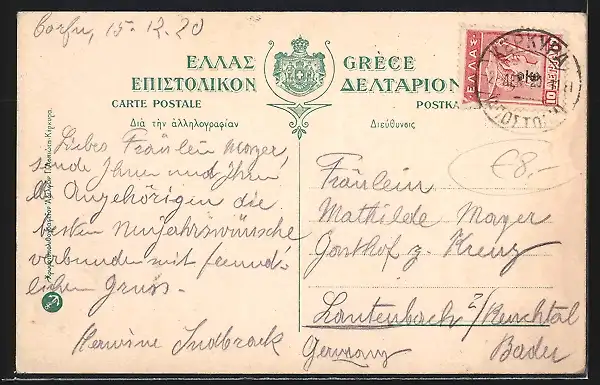 Corfu, 15-12-20
ΕΛΛΑΣ
GRÈCE
ΕΠΙΣΤΟΛΙΚΟΝ
ΔΕΛΤΑΡΙΟΝ
CARTE POSTALE
POSTKA
Διὰ τὴν ἀλληλογραφίαν
Διεύθυνσις
ΚΕΡΚΥΡΑ
€8.-
Liebes Fräulein Mayer,
sende Ihnen und Ihren
Angehörigen die
besten Neujahrswünsche
verbunden mit freund-
lichen Gruss-
Fräulein
Mathilde Mayer
Gasthof z. Kreuz
Lautenbach i/Renchtal
Germany
Baden